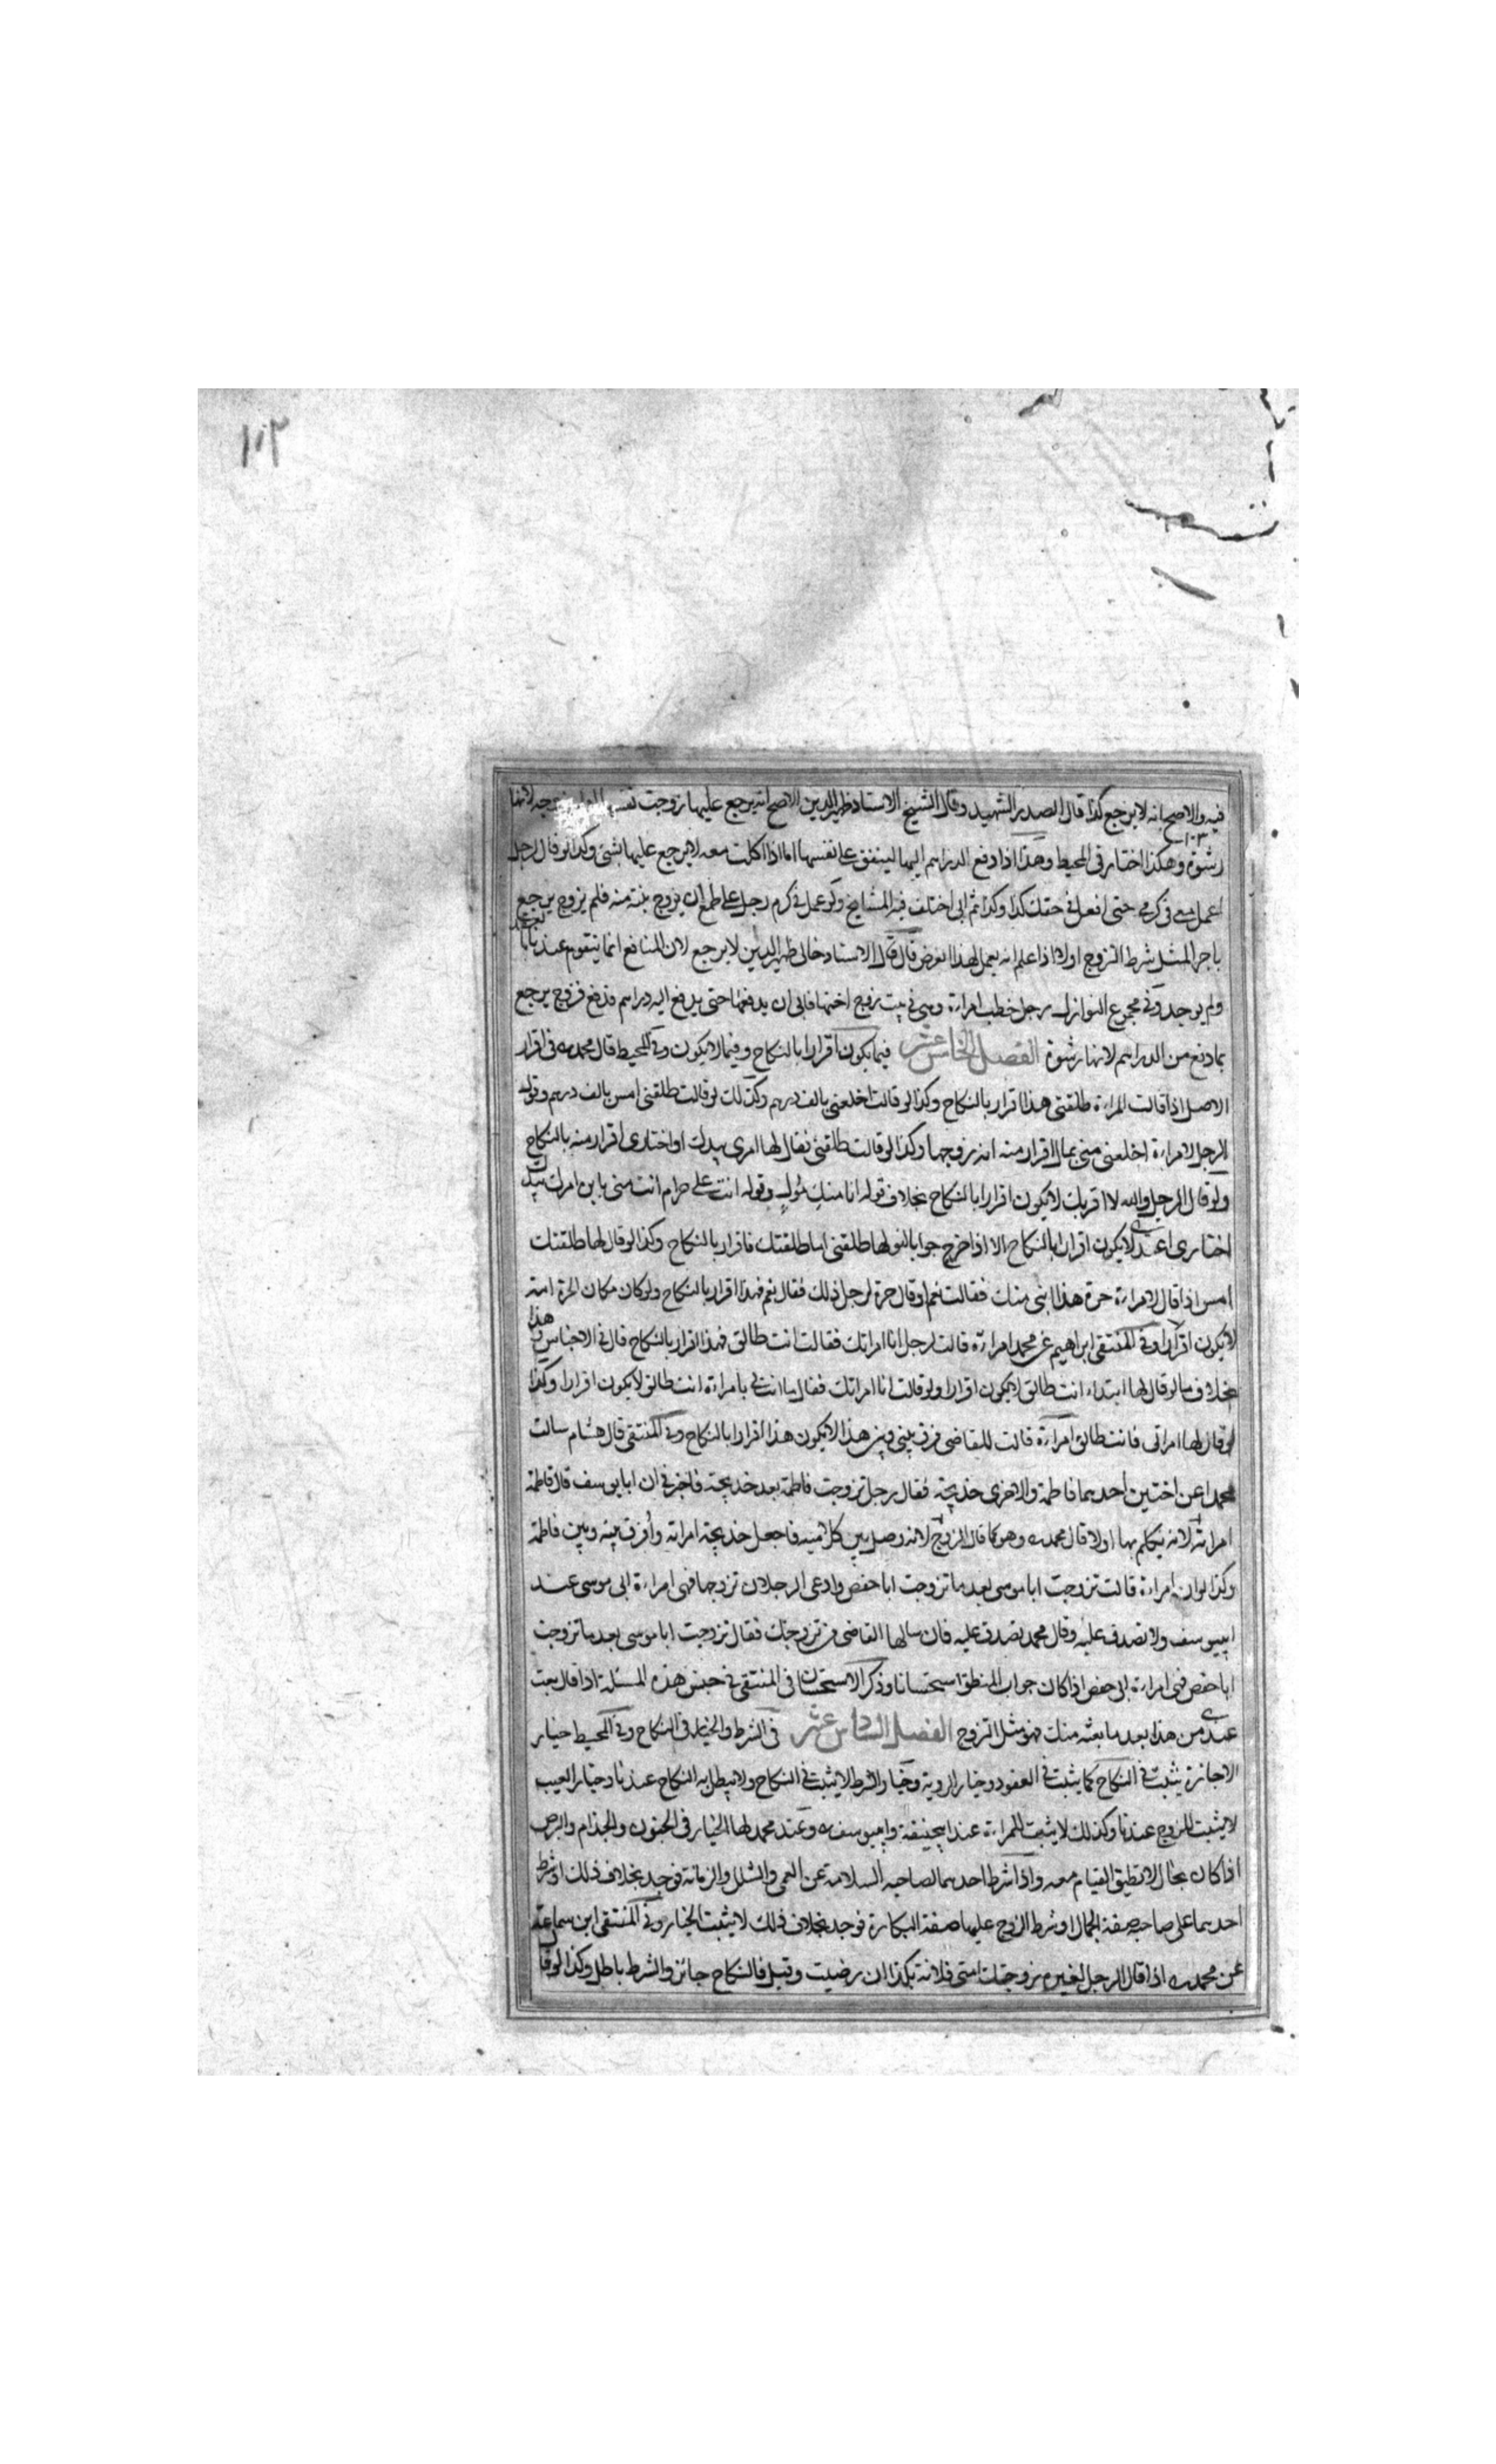 ١٠٣
فيه والاصح انه لا يرجع كذا قال الصدر الشهيد وقال الشيخ الاستاد ظهير الدين الاصح انه يرجع عليها زوجت نفسها لانها
١٠٣
رشوة وهكذا اختار في المحيط وهذا اذا دفع الدراهم اليها لينفق على نفسها اما اذا اكلت معه لا يرجع عليها بشئ وكذا لو قال رجل
اعمل معي في كرمي حتى افعل في حقك كذا وكذا ثم ابى اختلف فيه المشايخ ولو عمل في كرم رجل على طمع ان يزوج بنته منه فلم يزوج يرجع
باجر المثل شرط التزوج اولا اذا علم انه يعمل لهذا الغرض قال قال الاستاد خالي ظهير الدين لا يرجع لان المنافع انما يتقوم عندنا بالعقد
ولم يوجد وفي مجموع النوازل رجل خطب امراءة وهي في بيت زوج اختها فابى ان يدفعها حتى يدفع اليه دراهم فدفع فزوج يرجع
بما دفع من الدراهم لانها رشوة الفصل الخامس عشر فيما يكون اقرارا بالنكاح وفيما لا يكون وفي المحيط قال محمد في اقرار
الاصل اذا قالت المراءة طلقني هذا اقرار بالنكاح وكذا لو قالت اخلعني بالف درهم وكذلك لو قالت طلقتني امس بالف درهم وقول
الرجل لامراءة اخلعني مني بمال اقرار منه انه زوجها وكذا لو قالت طلقني فقال لها امرك بيدك او اختاري اقرار منه بالنكاح
ولو قال الرجل والله لا اقربك لا يكون اقرارا بالنكاح بخلاف قوله انا منك مول وقوله انت علي حرام انت مني باين امرك بيدك
اختاري اعتدي لا يكون اقرارا بالنكاح الا اذا خرج جوابا لقولها طلقني اما طلقتك فاقرار بالنكاح وكذا لو قال لها طلقتك
امس اذا قال لامراءة حرة هذا ابني منك فقالت نعم او قال حرة لرجل ذلك فقال نعم فهذا اقرار بالنكاح ولو كان مكان الحرة امة
لا يكون اقرارا وفي المنتقى ابراهيم عن محمد امراءة قالت لرجل انا امراتك فقالت انت طالق فهذا اقرار بالنكاح قال في الاجناس وهذا
بخلاف ما لو قال لها ابتداء انت طالق لا يكون اقرارا ولو قالت انا امراتك فقال ما انت لي بامراءة انت طالق لا يكون اقرارا وكذا
لو قال لها امراتى فانت طالق امراءة قالت للقاضي فرق بيني وبين هذا لا يكون هذا اقرارا بالنكاح وفي المنتقى قال هشام سالت
محمدا عن اختين احدهما فاطمة والاخرى خديجة فقال رجل تزوجت فاطمة بعد خديجة فاخبرني ان ابا يوسف قال فاطمة
امراته لانه يتكلم بها اولا قال محمد وهو كما قال الزوج لانه وصل بين كلاميه فاجعل خديجة امراته وافرق بينه وبين فاطمة
وكذا لو ان امراءة قالت تزوجت ابا موسى بعد ما تزوجت ابا حفص وادعى الرجلان تزوجها فهي امراءة ابي موسى عند
ابييوسف ولا تصدق عليه وقال محمد تصدق عليه فان سالها القاضي من تزوجك فقال تزوجت ابا موسى بعد ما تزوجت
ابا حفص فهي امراءة ابي حفص اذا كان جواب المنطق استحسانا وذكر الاستحسان في المنتقى في جنس هذه المسئلة اذا قال بعت
عبدي من هذا بعد ما بعته منك فهو مثل التزوج الفصل السادس عشر في الشرط والخيار في النكاح وفي المحيط خيار
الاجازة يثبت في النكاح كما يثبت في العقود وخيار الروية وخيار الشرط لا يثبت في النكاح ولا يبطل به النكاح عندنا وخيار العيب
لا يثبت للزوج عندنا وكذلك لا يثبت للمراءة عند ابيحنيفة وابييوسف وعند محمد لها الخيار في الجنون والجذام والبرص
اذا كان بحال لا تطيق القيام معه واذا شرط احدهما لصاحبه السلامة عن العمى والشلل والزمانة فوجد بخلاف ذلك او شرط
احدهما على صاحبه صفة الجمال او شرط الزوج عليها صفة البكارة فوجد بخلاف ذلك لا يثبت الخيار وفي المنتقى ابن سماعة
عن محمد اذا قال الرجل لغيره زوجتك امتي فلانة بكذا ان رضيت وقبل فالنكاح جائز والشرط باطل وكذا لو قال